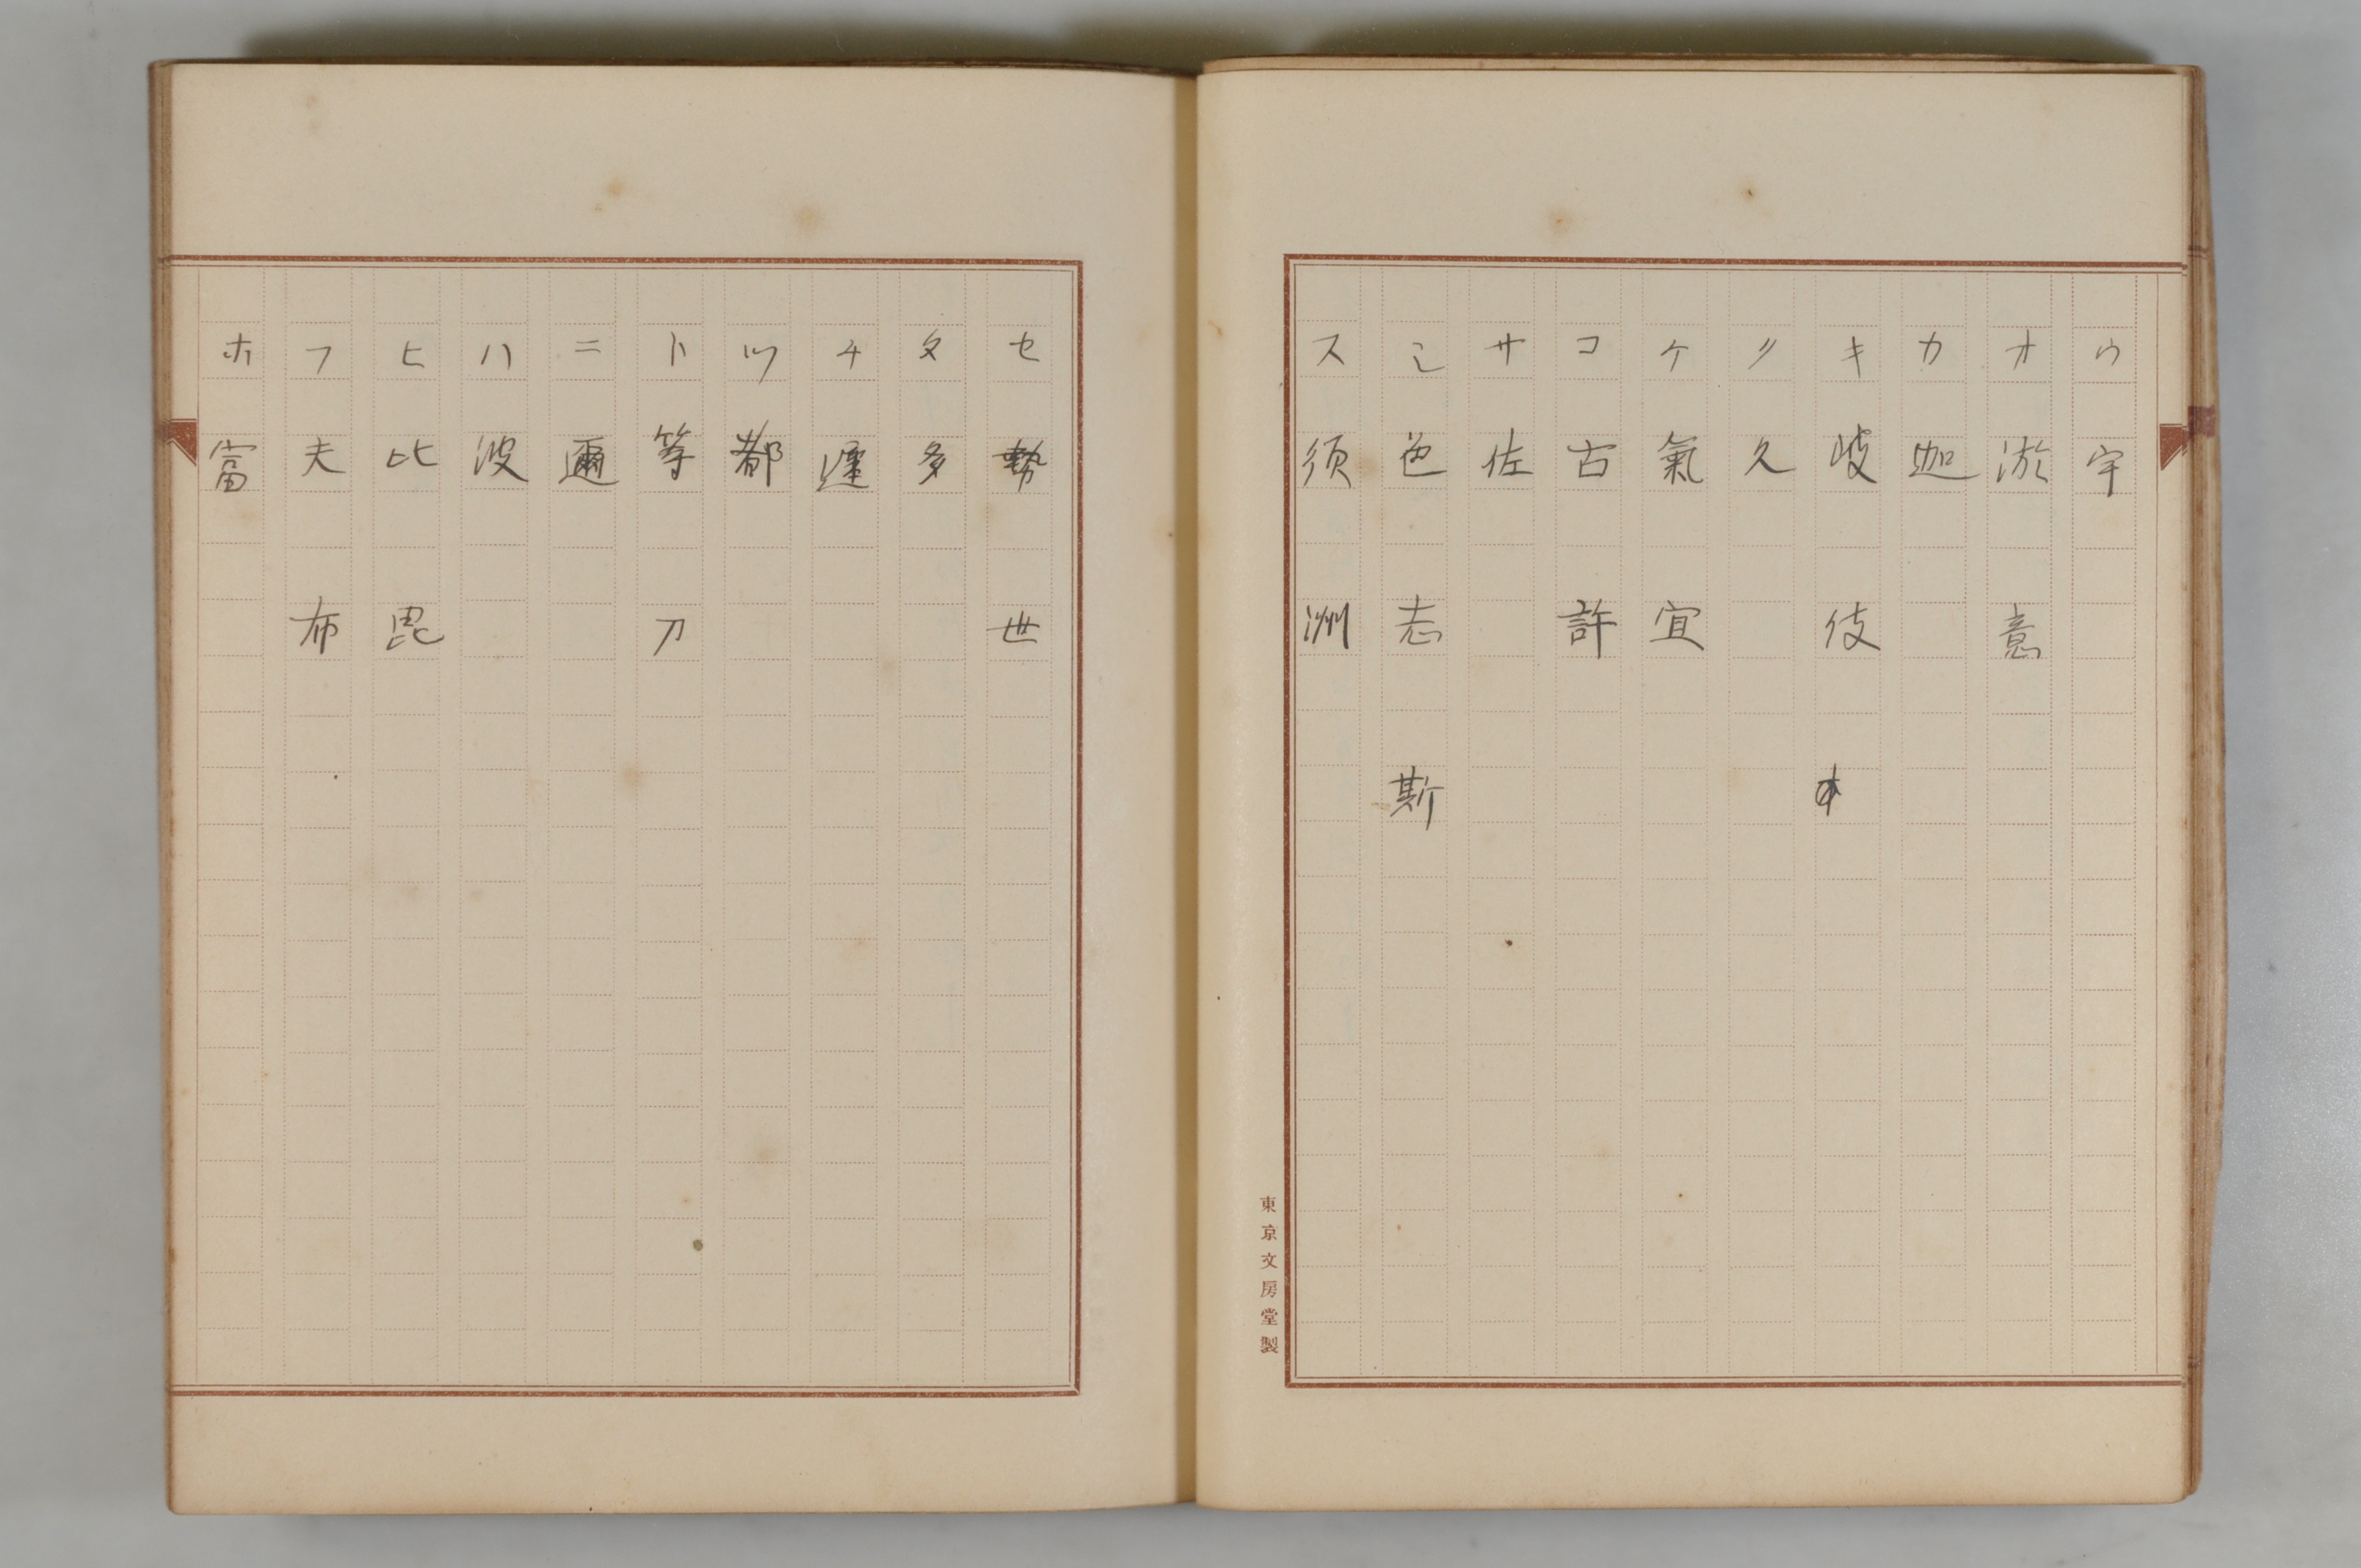 ウ 宇
オ 淤 意
カ 迦
キ 岐 伎
ク 久
ケ 氣 宜
コ 古 許
サ 佐
シ 色 志 斯
ス 須 洲
セ 勢 世
タ 多
チ 遲
ツ 都
ト 等 刀
ニ 邇
ハ 波
ヒ 比 毘
フ 夫 布
ホ 富
東京文房堂製